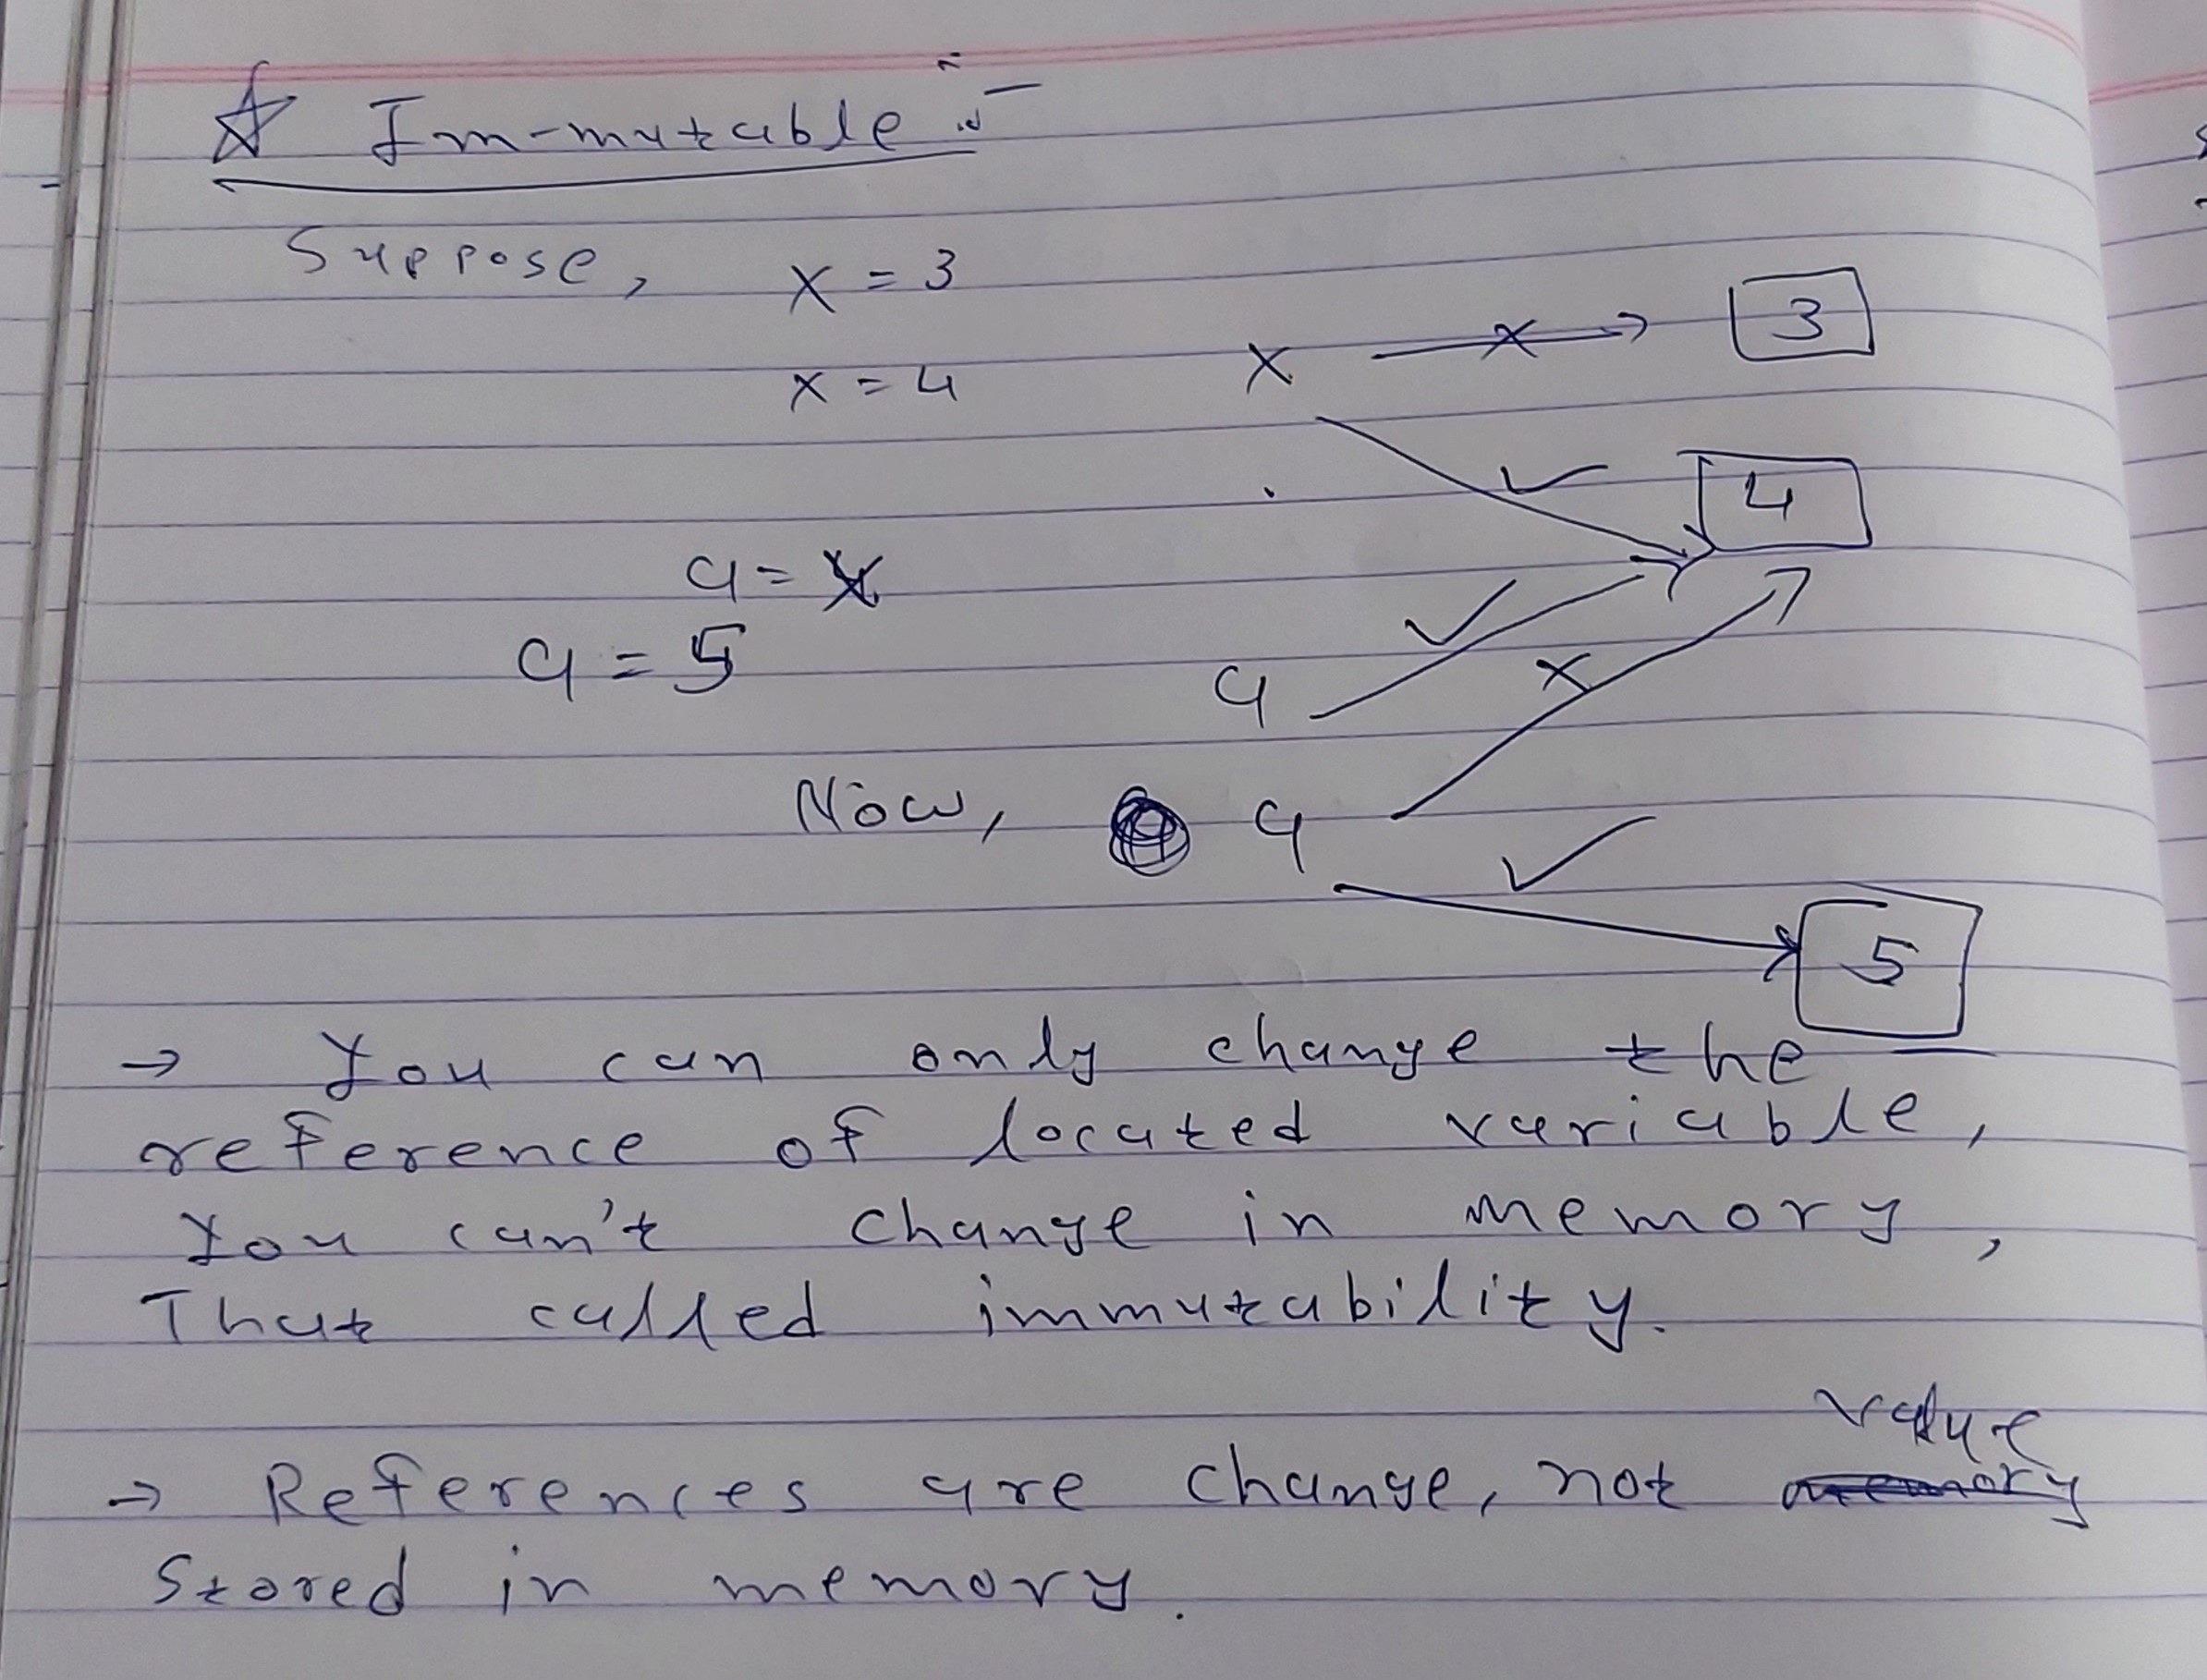 ☆ Im-mutable :-
Suppose, x = 3
x → 3
x = 4
4
a = x
a = 5
a
Now, a
5
→ You can only change the
reference of located variable,
You can't change in memory,
That called immutability.
value
→ References are change, not memory
Stored in memory.